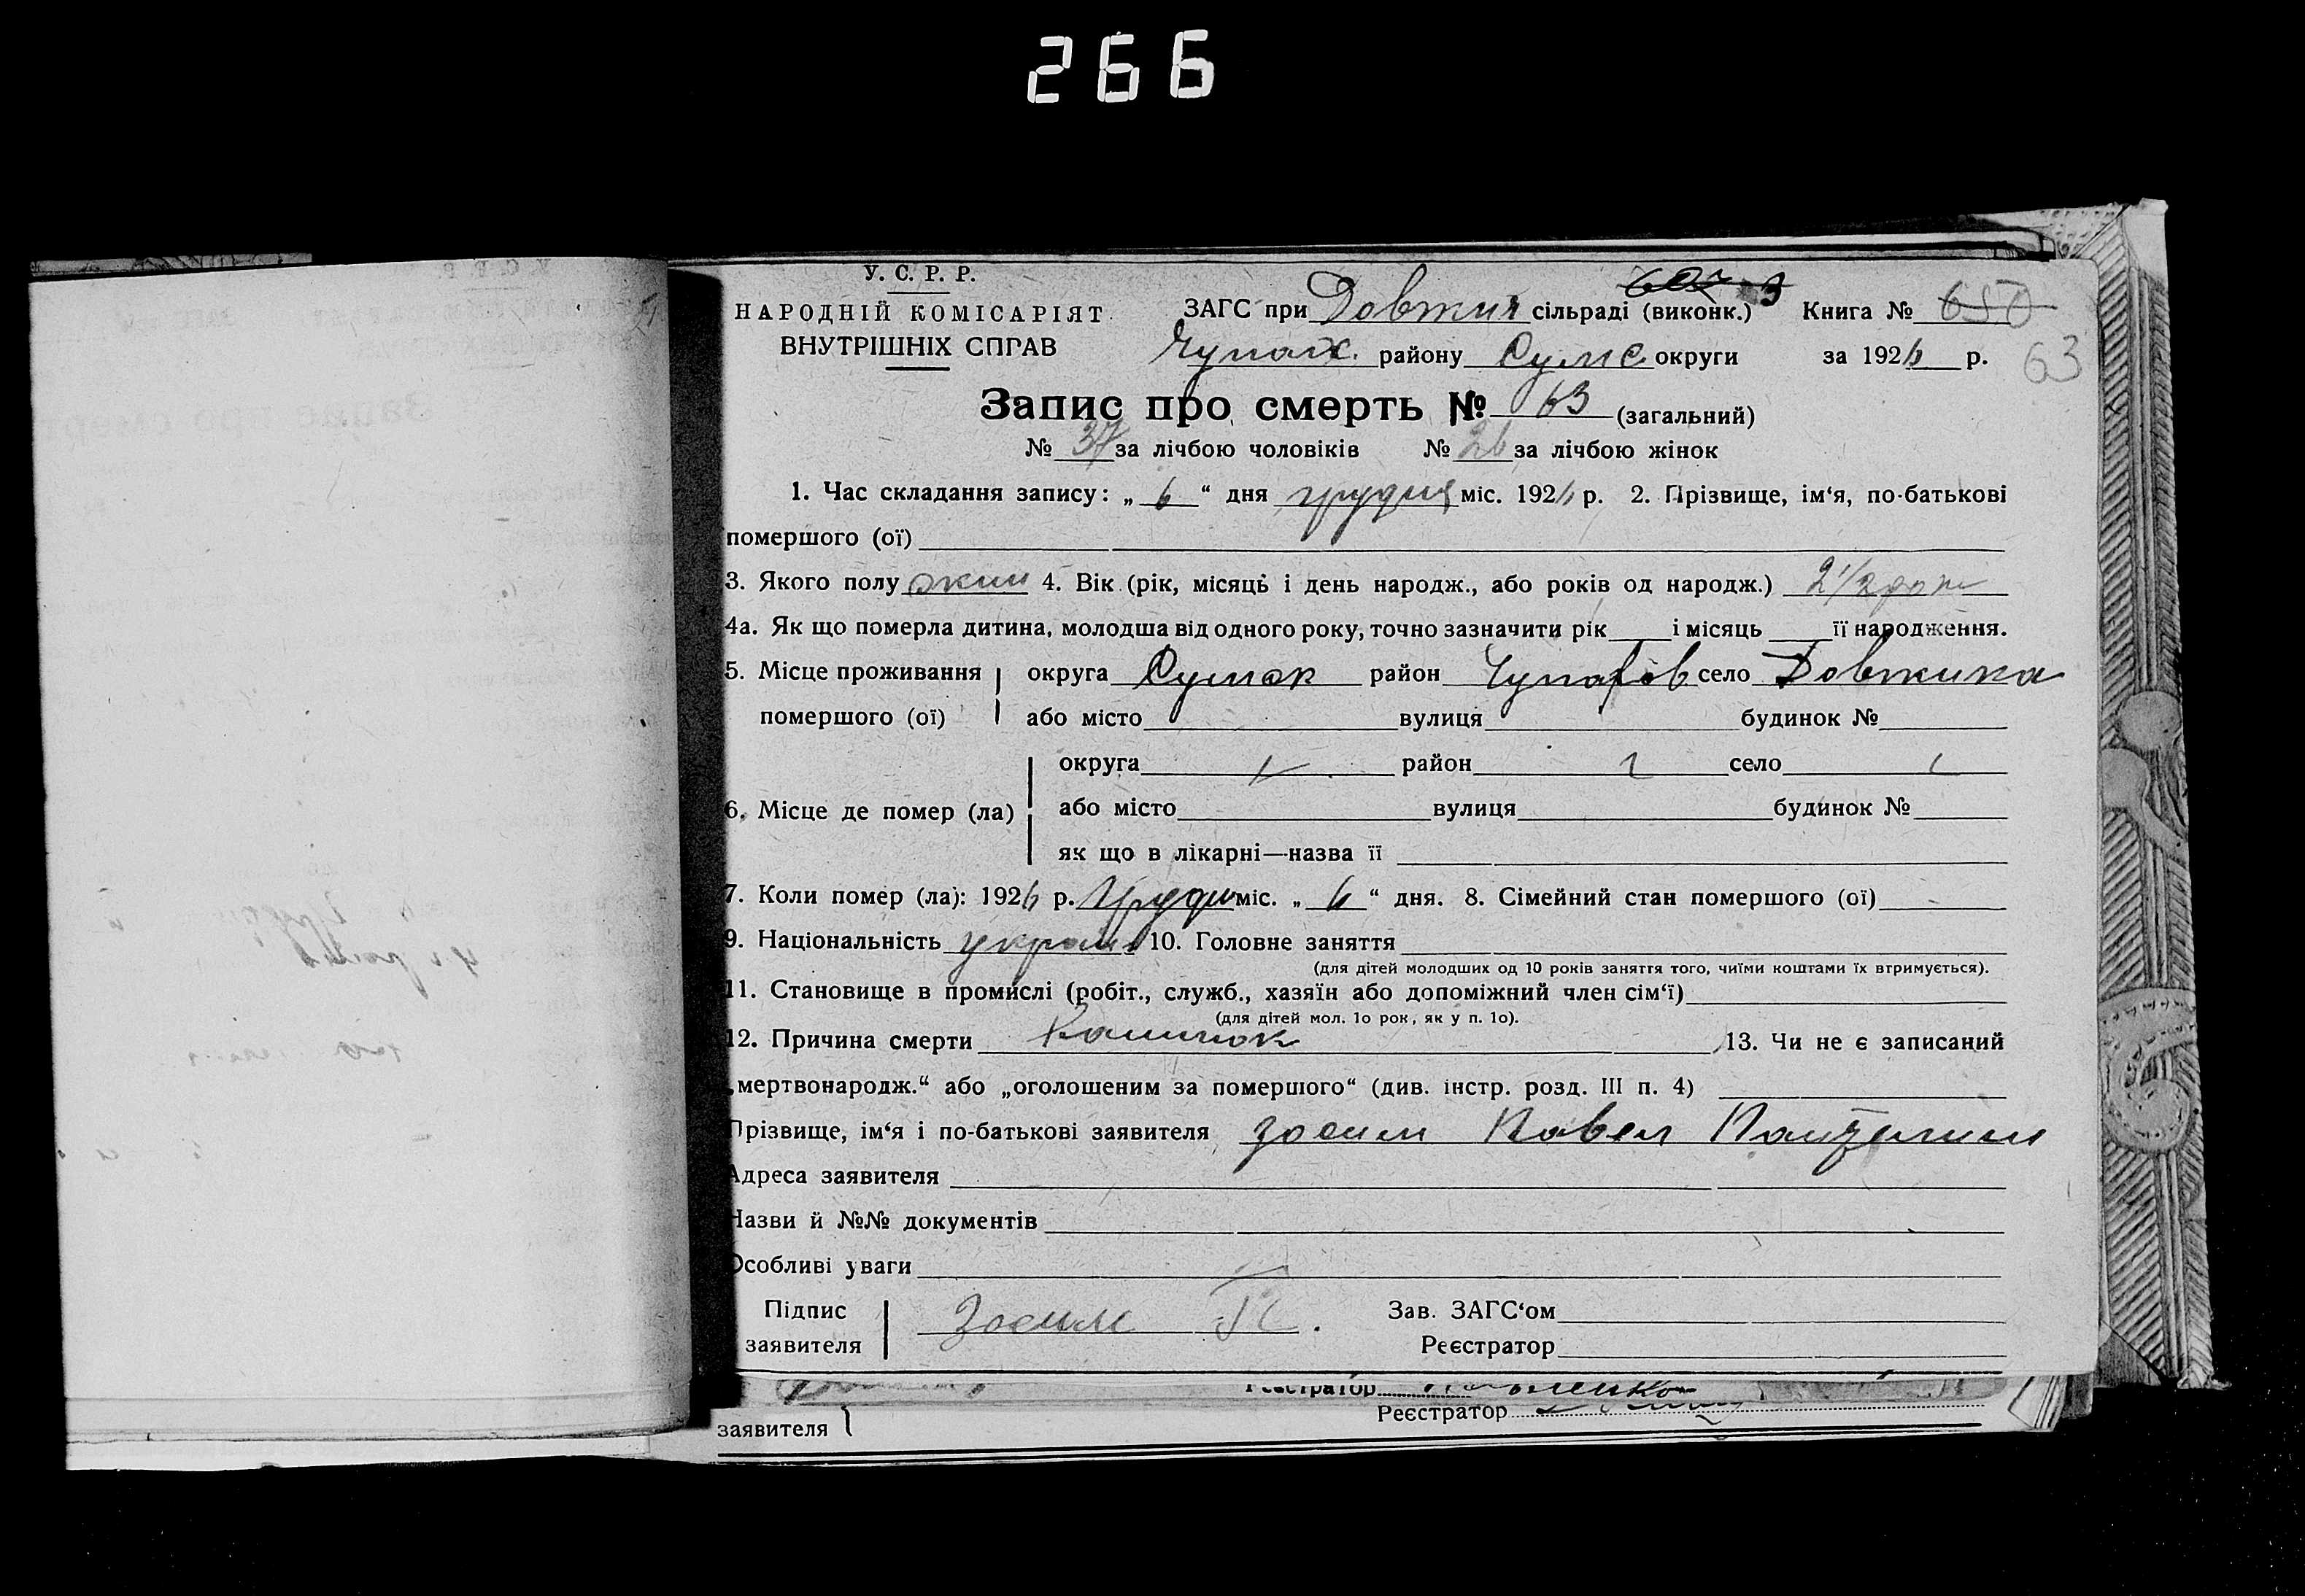 266
У. С. Р. Р.
НАРОДНІЙ КОМІСАРІЯТ
ВНУТРІШНІХ СПРАВ
ЗАГС при Довжин сільраді (виконк.) 3 Книга № 650
Чупах. району Сумс округи за 1926 р. 63
Запис про смерть № 63 (загальний)
№ 37 за лічбою чоловіків № 26 за лічбою жінок
1. Час складання запису: „ 6 “ дня грудня міс. 1926 р. 2. Прізвище, ім‘я, по-батькові
помершого (ої)
3. Якого полу жин 4. Вік (рік, місяць і день народж., або років од народж.) 2 1/2
4а. Як що померла дитина, молодша від одного року, точно зазначити рік і місяць її народження.
5. Місце проживання округа Сумск район село Довжика
помершого (ої) або місто вулиця будинок №
округа район село
6. Місце де помер (ла) або місто вулиця будинок №
як що в лікарні—назва її
7. Коли помер (ла): 1926 р. Грудн міс. „ 6 “ дня. 8. Сімейний стан помершого (ої)
9. Національність україн 10. Головне заняття
(для дітей молодших од 10 років заняття того, чиїми коштами їх втримується).
11. Становище в промислі (робіт., служб., хазяїн або допоміжний член сім‘ї)
(для дітей мол. 1о рок, як у п. 1о).
12. Причина смерти Кашлюк 13. Чи не є записаний
„мертвонародж.“ або „оголошеним за помершого“ (див. інстр. розд. III п. 4)
Прізвище, ім‘я і по-батькові заявителя Зосим Павел
Адреса заявителя
Назви й №№ документів
Особливі уваги
Підпис Зосим П Зав. ЗАГС‘ом
заявителя Реєстратор
Реєстратор
Реєстратор
заявителя